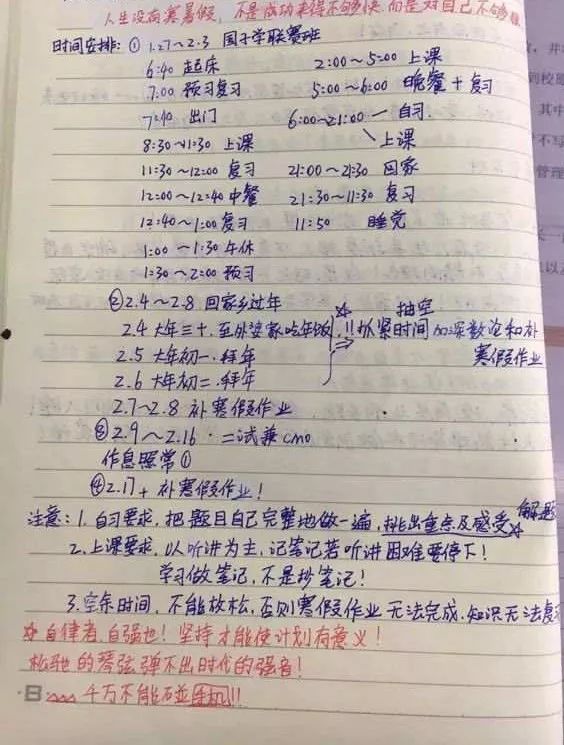 人生没有寒暑假，不是成功来得不够快，而是对自己不够狠
时间安排：① 1.27～2.3 国子学联赛班
6:40 起床 2:00～5:00 上课
7:00 预习复习 5:00～6:00 晚餐＋复习
7:40 出门 6:00～21:00 一 自习.
8:30～11:30 上课 上课
11:30～12:00 复习 21:00～21:30 回家
12:00～12:40 中餐 21:30～11:30 复习
12:40～1:00 复习 11:50 睡觉
1:00～1:30 午休
1:30～2:00 预习
②2.4～2.8 回家乡过年 抽空
2.4 大年三十.至外婆家吃年饭 !!抓紧时间加深数论和补
2.5 大年初一.拜年 寒假作业
2.6 大年初二.拜年
2.7～2.8 补寒假作业
③2.9～2.16·二试兼cmo
作息照常①
④2.17＋补寒假作业！
注意：1.自习要求，把题目自己完整地做一遍，挑出重点及感受 解题
2.上课要求，以听讲为主，记笔记若听讲困难要停下！
学习做笔记，不是抄笔记！
3.空余时间，不能放松，否则寒假作业无法完成.知识无法复
☆自律者，自强也！坚持才能使计划有意义！
松驰的琴弦弹不出时代的强音！
千万不能碰手机!!!